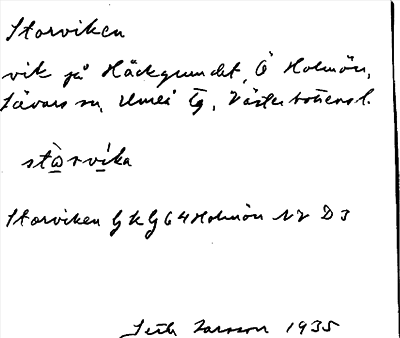 Storviken
vik på Häckgrundet, Ö Holmön,
Sävars sn, Umeå Tg, Västerbottensl.
stòrvíka
Storviken GKG 64 Holmön NV D3
Seth Larsson 1935